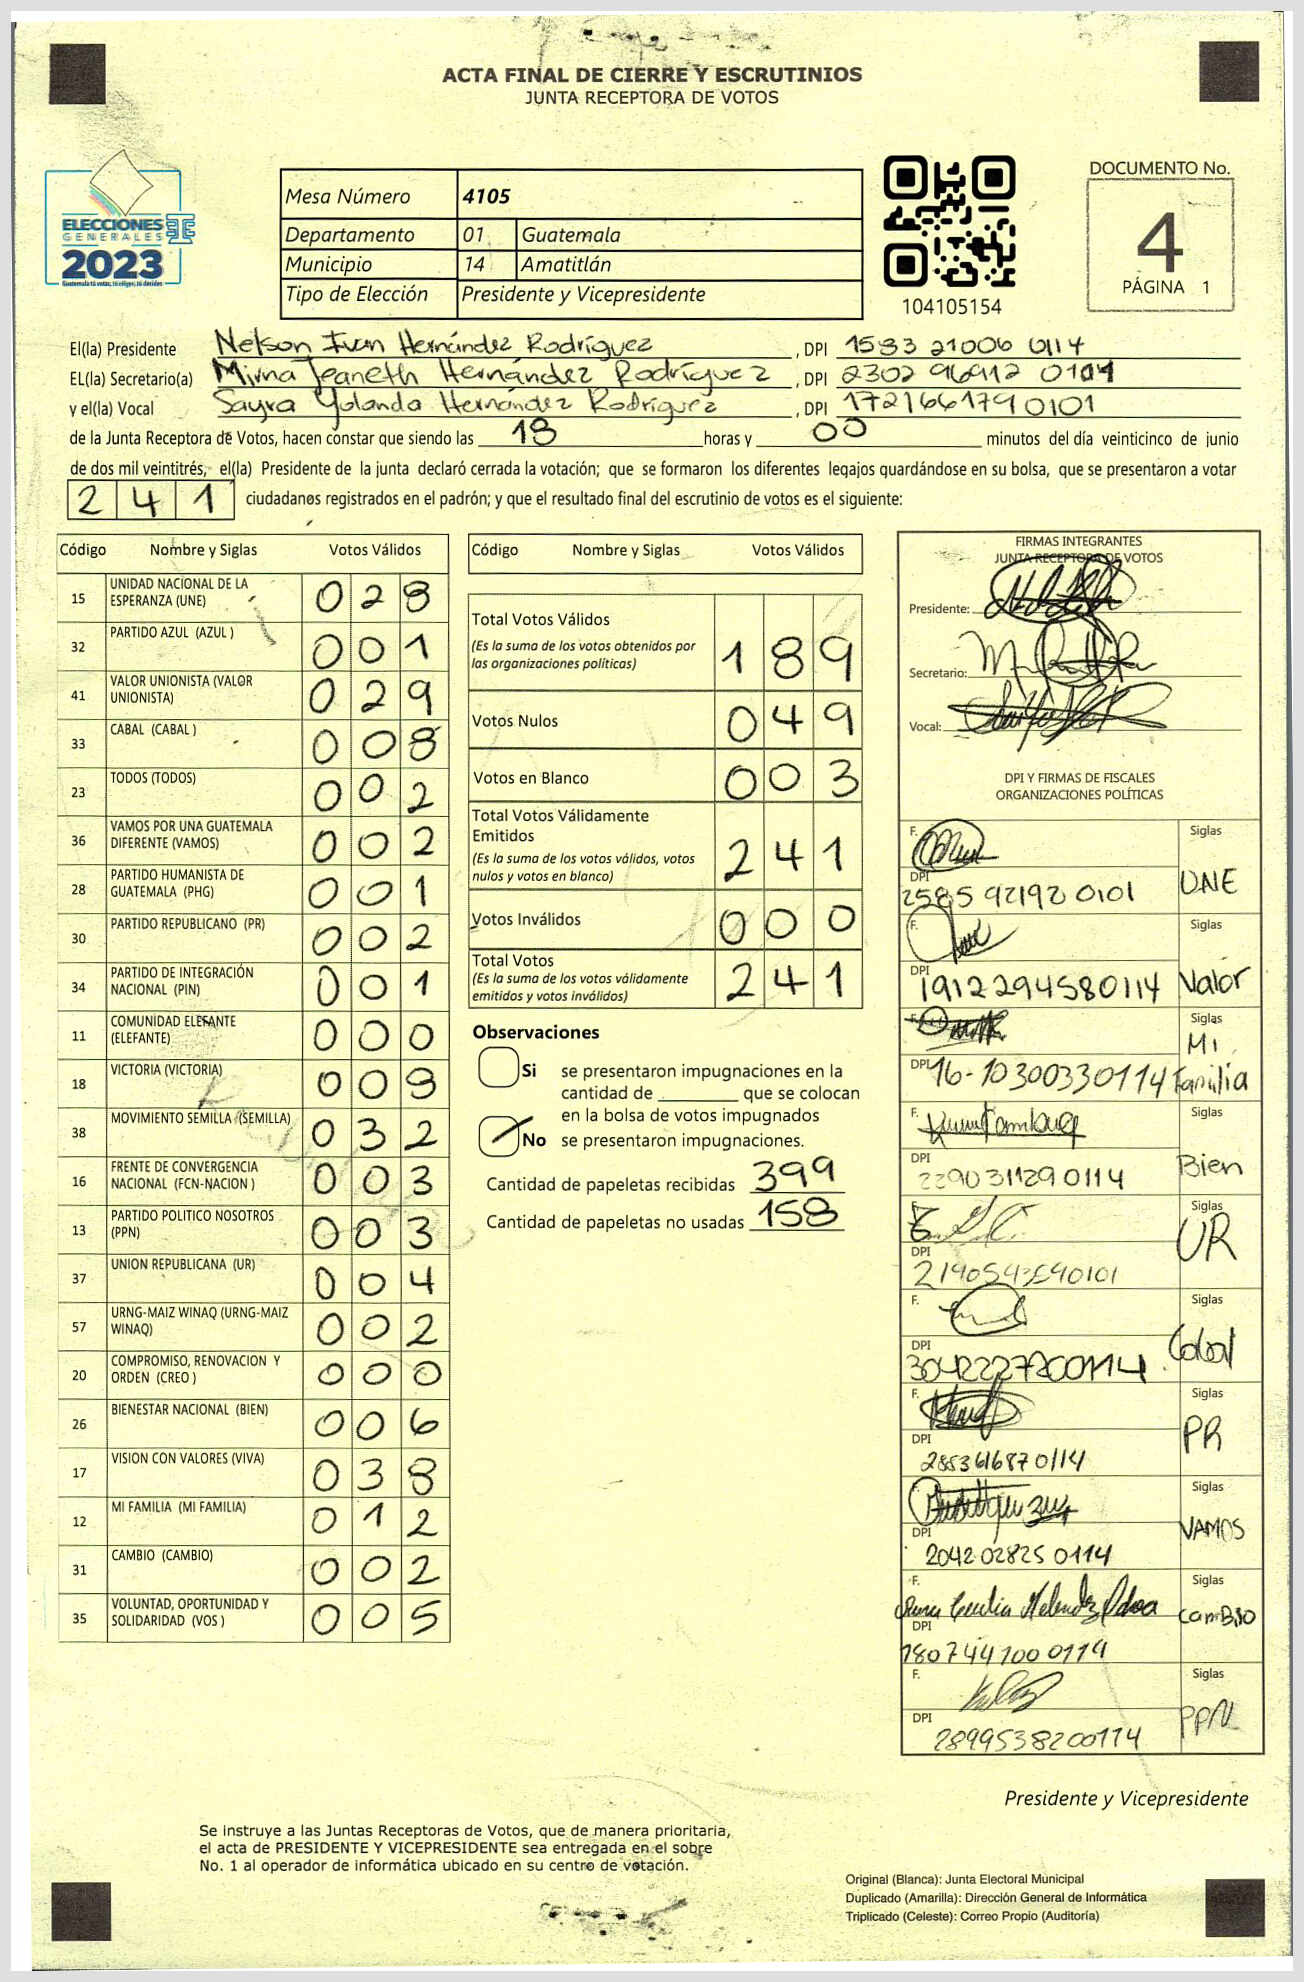 ACTA FINAL DE CIERRE Y ESCRUTINIOS
JUNTA RECEPTORA DE VOTOS
ELECCIONES
GENERALES
2023
Guatemala tú votas, tú eliges, tú decides
Mesa Número 4105
Departamento 01 Guatemala
Municipio 14 Amatitlán
Tipo de Elección Presidente y Vicepresidente
104105154
DOCUMENTO No.
4
PÁGINA 1
El(la) Presidente Nelson Ivan Hernández Rodríguez , DPI 1583 21006 0114
EL(la) Secretario(a) Mirna Jeaneth Hernández Rodríguez , DPI 2302 96912 0101
y el(la) Vocal Sayra Yolanda Hernández Rodríguez , DPI 1721661790101
de la Junta Receptora de Votos, hacen constar que siendo las 18 horas y 00 minutos del día veinticinco de junio
de dos mil veintitrés, el(la) Presidente de la junta declaró cerrada la votación; que se formaron los diferentes legajos quardándose en su bolsa, que se presentaron a votar
241 ciudadanos registrados en el padrón; y que el resultado final del escrutinio de votos es el siguiente:
Código Nombre y Siglas Votos Válidos
15 UNIDAD NACIONAL DE LA ESPERANZA (UNE) 028
32 PARTIDO AZUL (AZUL ) 001
41 VALOR UNIONISTA (VALOR UNIONISTA) 029
33 CABAL (CABAL ) 008
23 TODOS (TODOS) 002
36 VAMOS POR UNA GUATEMALA DIFERENTE (VAMOS) 002
28 PARTIDO HUMANISTA DE GUATEMALA (PHG) 001
30 PARTIDO REPUBLICANO (PR) 002
34 PARTIDO DE INTEGRACIÓN NACIONAL (PIN) 001
11 COMUNIDAD ELEFANTE (ELEFANTE) 000
18 VICTORIA (VICTORIA) 009
38 MOVIMIENTO SEMILLA (SEMILLA) 032
16 FRENTE DE CONVERGENCIA NACIONAL (FCN-NACION ) 003
13 PARTIDO POLITICO NOSOTROS (PPN) 003
37 UNION REPUBLICANA (UR) 004
57 URNG-MAIZ WINAQ (URNG-MAIZ WINAQ) 002
20 COMPROMISO, RENOVACION Y ORDEN (CREO ) 000
26 BIENESTAR NACIONAL (BIEN) 006
17 VISION CON VALORES (VIVA) 038
12 MI FAMILIA (MI FAMILIA) 012
31 CAMBIO (CAMBIO) 002
35 VOLUNTAD, OPORTUNIDAD Y SOLIDARIDAD (VOS ) 005
Código Nombre y Siglas Votos Válidos
Total Votos Válidos
(Es la suma de los votos obtenidos por
las organizaciones políticas) 189
Votos Nulos 049
Votos en Blanco 003
Total Votos Válidamente
Emitidos
(Es la suma de los votos válidos, votos
nulos y votos en blanco) 241
Votos Inválidos 000
Total Votos
(Es la suma de los votos válidamente
emitidos y votos inválidos) 241
Observaciones
Si se presentaron impugnaciones en la
cantidad de ________ que se colocan
en la bolsa de votos impugnados
No se presentaron impugnaciones.
Cantidad de papeletas recibidas 399
Cantidad de papeletas no usadas 158
FIRMAS INTEGRANTES
JUNTA RECEPTORA DE VOTOS
Presidente:
Secretario:
Vocal:
DPI Y FIRMAS DE FISCALES
ORGANIZACIONES POLÍTICAS
F. Siglas
DPI 2585 92192 0101 UNE
F. Siglas
DPI 1912294580114 Valor
F. Siglas
DPI 16-10300330114 Mi Familia
F. Siglas
DPI 2290311290114 Bien
F. Siglas
DPI UR
F. Siglas
DPI 3042227200114 Cabal
F. Siglas
DPI 285361687 0114 PR
F. Siglas
DPI 2042 02825 0114 VAMOS
F. Siglas
DPI 180744100 0114 CamBio
F. Siglas
DPI 2899538200114 PPN
Presidente y Vicepresidente
Se instruye a las Juntas Receptoras de Votos, que de manera prioritaria,
el acta de PRESIDENTE Y VICEPRESIDENTE sea entregada en el sobre
No. 1 al operador de informática ubicado en su centro de votación.
Original (Blanca): Junta Electoral Municipal
Duplicado (Amarilla): Dirección General de Informática
Triplicado (Celeste): Correo Propio (Auditoría)